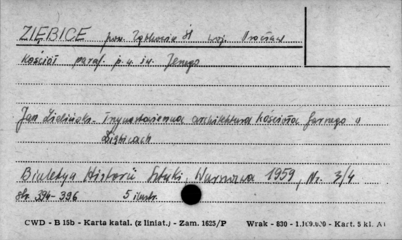 ZIĘBICE pow. Ząbkowice Śl. woj. Wrocław
Kościół paraf. p.w. św. Jerzego
Jan Zieliński. architektura kościoła farnego w
Ziębicach
Biuletyn Historii Sztuki, Warszawa 1959, Nr. 3/4
str. 394-396 5 ilustr.
CWD - B 15b - Karta katal. (z liniat.) - Zam. 1625/P Wrak - 830 - Kart. 5 kl. A1